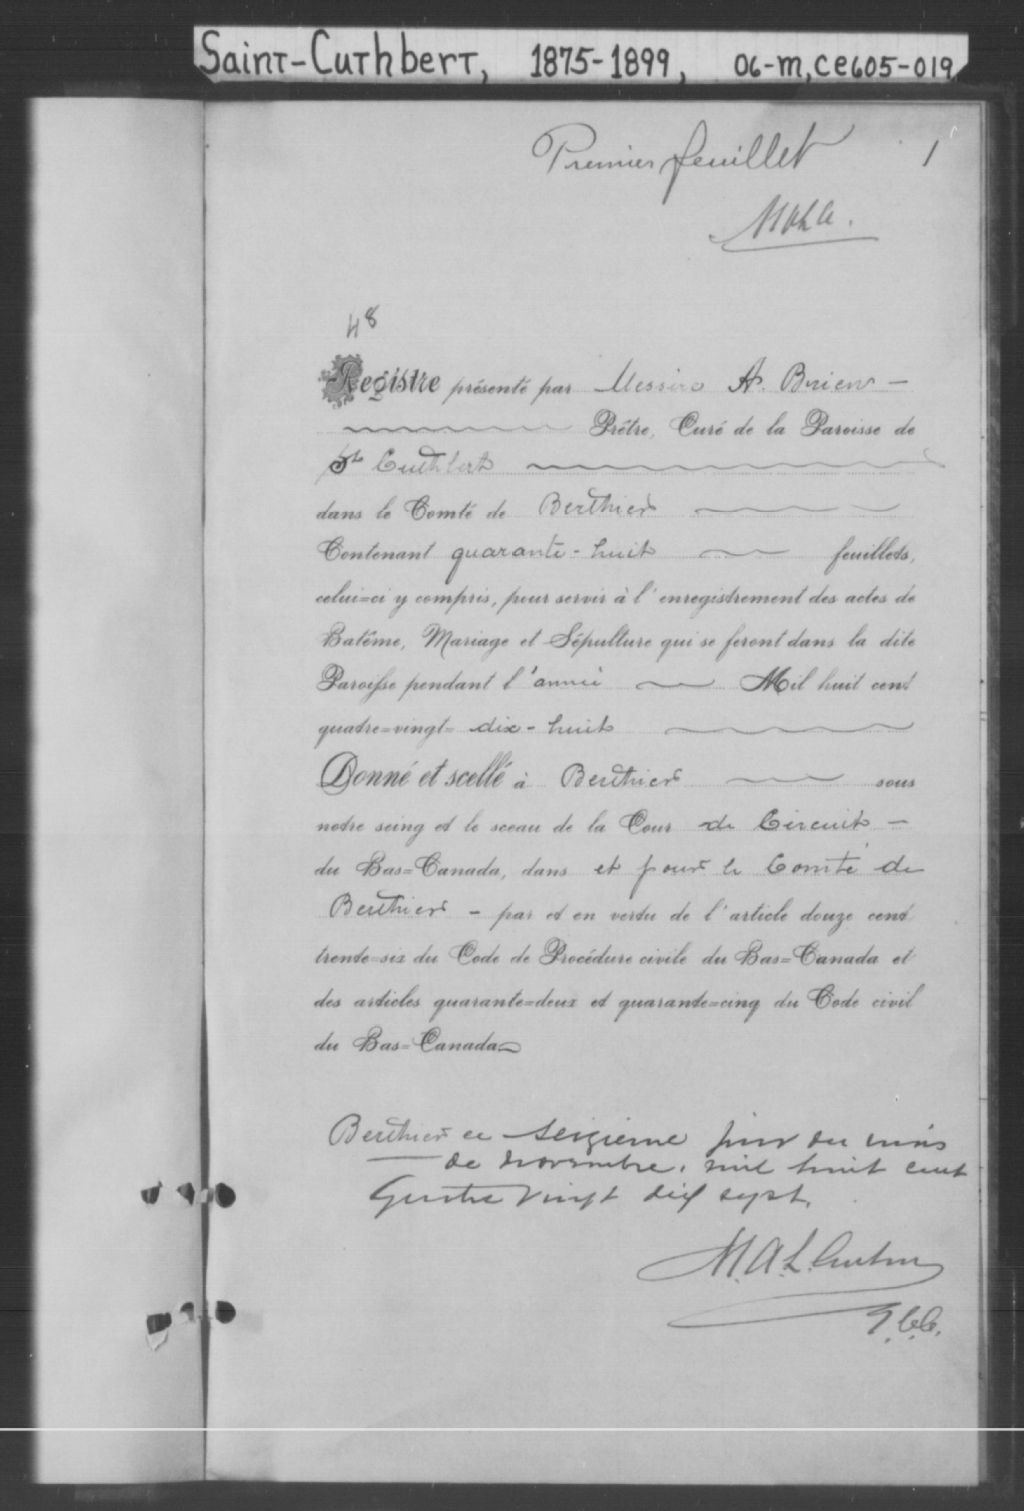 Saint-Cuthbert, 1875-1899, 06-M,CE605-019
Premier feuillet 1
48
Registre présenté par Messire A. Brien
Prêtre, Curé de la Paroisse de
St Cuthbert
dans le Comté de Berthier
Contenant quarante-huit feuillets,
celui=ci y compris, pour servir à l'enregistrement des actes de
Batême, Mariage et Sépulture qui se feront dans la dite
Paroisse pendant l'année Mil huit cent
quatre=vingt= dix-huit
Donné et scellé à Berthier sous
notre seing et le sceau de la Cour de Circuit
du Bas=Canada, dans et pour le Comté de
Berthier - par et en vertu de l'article douze cent
trente=six du Code de Procédure civile du Bas=Canada et
des articles quarante=deux et quarante=cinq du Code civil
du Bas=Canada
Berthier ce seizieme jour du mois
de novembre, mil huit cent
Quatre Vingt dix sept.
M. A. L.
G.C.C.